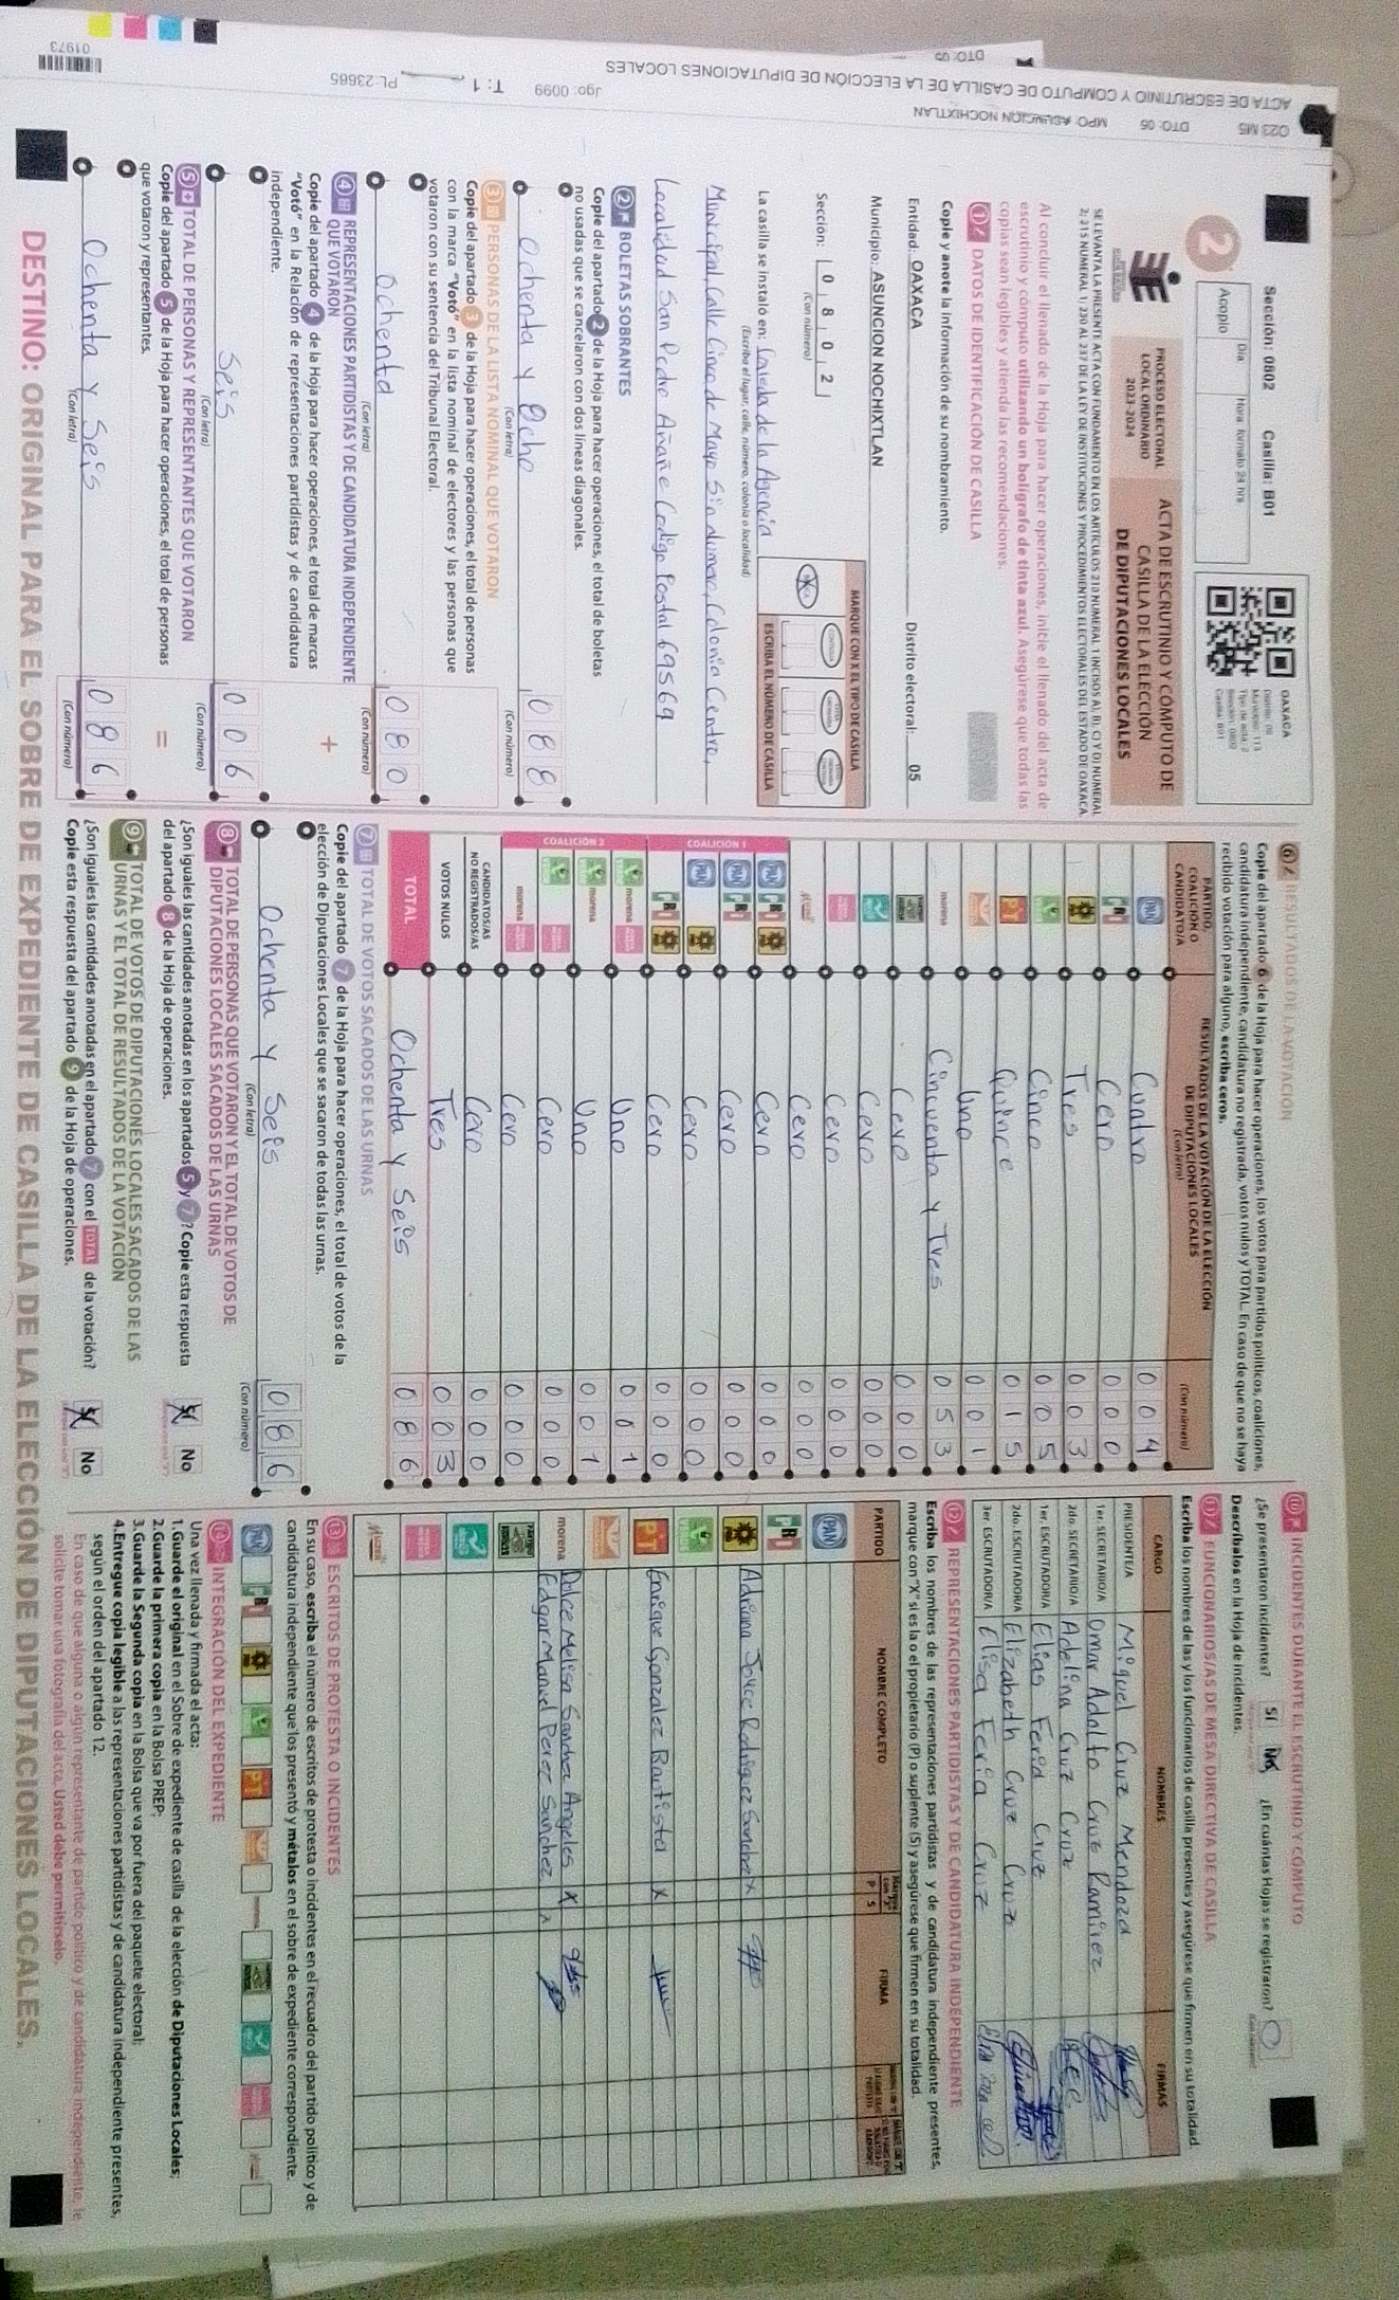 Sección: 0802 Casilla: B01
Acopio Día Hora formato 24 hrs
OAXACA
2
PROCESO ELECTORAL
LOCAL ORDINARIO
2023-2024
ACTA DE ESCRUTINIO Y CÓMPUTO DE
CASILLA DE LA ELECCIÓN
DE DIPUTACIONES LOCALES
SE LEVANTA LA PRESENTE ACTA CON FUNDAMENTO EN LOS ARTÍCULOS 213 NUMERAL 1 INCISOS A), B), C) Y D) NUMERAL
2; 215 NUMERAL 1; 230 AL 237 DE LA LEY DE INSTITUCIONES Y PROCEDIMIENTOS ELECTORALES DEL ESTADO DE OAXACA
Al concluir el llenado de la Hoja para hacer operaciones, inicie el llenado del acta de
escrutinio y cómputo utilizando un bolígrafo de tinta azul. Asegúrese que todas las
copias sean legibles y atienda las recomendaciones.
1 DATOS DE IDENTIFICACIÓN DE CASILLA
Copie y anote la información de su nombramiento.
Entidad: OAXACA Distrito electoral: 05
Municipio: ASUNCION NOCHIXTLAN
Sección: 0 8 0 2
(Con número)
MARQUE CON X EL TIPO DE CASILLA
ESCRIBA EL NÚMERO DE CASILLA
La casilla se instaló en: Corredor de la Agencia
(Escriba el lugar, calle, número, colonia o localidad)
Municipal, Calle Cinco de Mayo Sin numero, Colonia Centro,
Localidad San Pedro Añañe Codigo Postal 69569
2 BOLETAS SOBRANTES
Copie del apartado 2 de la Hoja para hacer operaciones, el total de boletas
no usadas que se cancelaron con dos líneas diagonales.
Ochenta y Ocho 0 8 8
(Con letra) (Con número)
3 PERSONAS DE LA LISTA NOMINAL QUE VOTARON
Copie del apartado 3 de la Hoja para hacer operaciones, el total de personas
con la marca "Votó" en la lista nominal de electores y las personas que
votaron con su sentencia del Tribunal Electoral.
Ochenta 0 8 0
(Con letra) (Con número)
4 REPRESENTACIONES PARTIDISTAS Y DE CANDIDATURA INDEPENDIENTE
QUE VOTARON
Copie del apartado 4 de la Hoja para hacer operaciones, el total de marcas
"Votó" en la Relación de representaciones partidistas y de candidatura
independiente.
+
Seis 0 0 6
(Con letra) (Con número)
5 TOTAL DE PERSONAS Y REPRESENTANTES QUE VOTARON
Copie del apartado 5 de la Hoja para hacer operaciones, el total de personas
que votaron y representantes.
=
Ochenta y Seis 0 8 6
(Con letra) (Con número)
6 RESULTADOS DE LA VOTACIÓN
Copie del apartado 6 de la Hoja para hacer operaciones, los votos para partidos políticos, coaliciones,
candidatura independiente, candidatura no registrada, votos nulos y TOTAL. En caso de que no se haya
recibido votación para alguno, escriba ceros.
PARTIDO,
COALICIÓN O
CANDIDATO/A
RESULTADOS DE LA VOTACIÓN DE LA ELECCIÓN
DE DIPUTACIONES LOCALES
(Con letra)
(Con número)
PAN Cuatro 0 0 4
PRI Cero 0 0 0
Tres 0 0 3
Cinco 0 0 5
PT Quince 0 1 5
Uno 0 0 1
morena Cincuenta y Tres 0 5 3
Cero 0 0 0
Cero 0 0 0
Cero 0 0 0
Cero 0 0 0
COALICIÓN 1
PAN PRI Cero 0 0 0
PAN PRI Cero 0 0 0
PAN Cero 0 0 0
PRI Cero 0 0 0
COALICIÓN 2
morena Uno 0 0 1
morena Uno 0 0 1
Cero 0 0 0
morena Cero 0 0 0
CANDIDATOS/AS
NO REGISTRADOS/AS Cero 0 0 0
VOTOS NULOS Tres 0 0 3
TOTAL Ochenta y Seis 0 8 6
7 TOTAL DE VOTOS SACADOS DE LAS URNAS
Copie del apartado 7 de la Hoja para hacer operaciones, el total de votos de la
elección de Diputaciones Locales que se sacaron de todas las urnas.
Ochenta y Seis 0 8 6
(Con letra) (Con número)
8 TOTAL DE PERSONAS QUE VOTARON Y EL TOTAL DE VOTOS DE
DIPUTACIONES LOCALES SACADOS DE LAS URNAS
¿Son iguales las cantidades anotadas en los apartados 5 y 7? Copie esta respuesta
del apartado 8 de la Hoja de operaciones.
Sí No
9 TOTAL DE VOTOS DE DIPUTACIONES LOCALES SACADOS DE LAS
URNAS Y EL TOTAL DE RESULTADOS DE LA VOTACIÓN
¿Son iguales las cantidades anotadas en el apartado 7 con el TOTAL de la votación?
Copie esta respuesta del apartado 9 de la Hoja de operaciones.
Sí No
10 INCIDENTES DURANTE EL ESCRUTINIO Y CÓMPUTO
¿Se presentaron incidentes? Sí No ¿En cuántas Hojas se registraron? 0
Descríbalos en la Hoja de incidentes.
11 FUNCIONARIOS/AS DE MESA DIRECTIVA DE CASILLA
Escriba los nombres de las y los funcionarios de casilla presentes y asegúrese que firmen en su totalidad.
CARGO NOMBRES FIRMAS
PRESIDENTE/A Miguel Cruz Mendoza
1er. SECRETARIO/A Omar Adolfo Cruz Ramirez
2do. SECRETARIO/A Adelina Cruz Cruz
1er. ESCRUTADOR/A Elias Feria Cruz
2do. ESCRUTADOR/A Elizabeth Cruz Cruz
3er. ESCRUTADOR/A Elisa Feria Cruz
12 REPRESENTACIONES PARTIDISTAS Y DE CANDIDATURA INDEPENDIENTE
Escriba los nombres de las representaciones partidistas y de candidatura independiente presentes,
marque con "X" si es la o el propietario (P) o suplente (S) y asegúrese que firmen en su totalidad.
PARTIDO NOMBRE COMPLETO P S FIRMA
PAN
PRI
Adriana Joyce Rodriguez Sanchez X
PT Enrique Gonzalez Bautista X
morena Dulce Melisa Sanchez Angeles X
Edgar Manuel Perez Sanchez X
13 ESCRITOS DE PROTESTA O INCIDENTES
En su caso, escriba el número de escritos de protesta o incidentes en el recuadro del partido político y de
candidatura independiente que los presentó y métalos en el sobre de expediente correspondiente.
PAN PRI PT
14 INTEGRACIÓN DEL EXPEDIENTE
Una vez llenada y firmada el acta:
1. Guarde el original en el Sobre de expediente de casilla de la elección de Diputaciones Locales;
2. Guarde la primera copia en la Bolsa PREP;
3. Guarde la Segunda copia en la Bolsa que va por fuera del paquete electoral;
4. Entregue copia legible a las representaciones partidistas y de candidatura independiente presentes,
según el orden del apartado 12.
En caso de que alguna o algún representante de partido político y de candidatura independiente, le
solicite tomar una fotografía del acta, Usted debe permitírselo.
DESTINO: ORIGINAL PARA EL SOBRE DE EXPEDIENTE DE CASILLA DE LA ELECCIÓN DE DIPUTACIONES LOCALES.
O23 M5 DTO: 05 MPO: ASUNCION NOCHIXTLAN
ACTA DE ESCRUTINIO Y COMPUTO DE CASILLA DE LA ELECCIÓN DE DIPUTACIONES LOCALES
Jgo: 0099 T: 1 PL:23665
01973